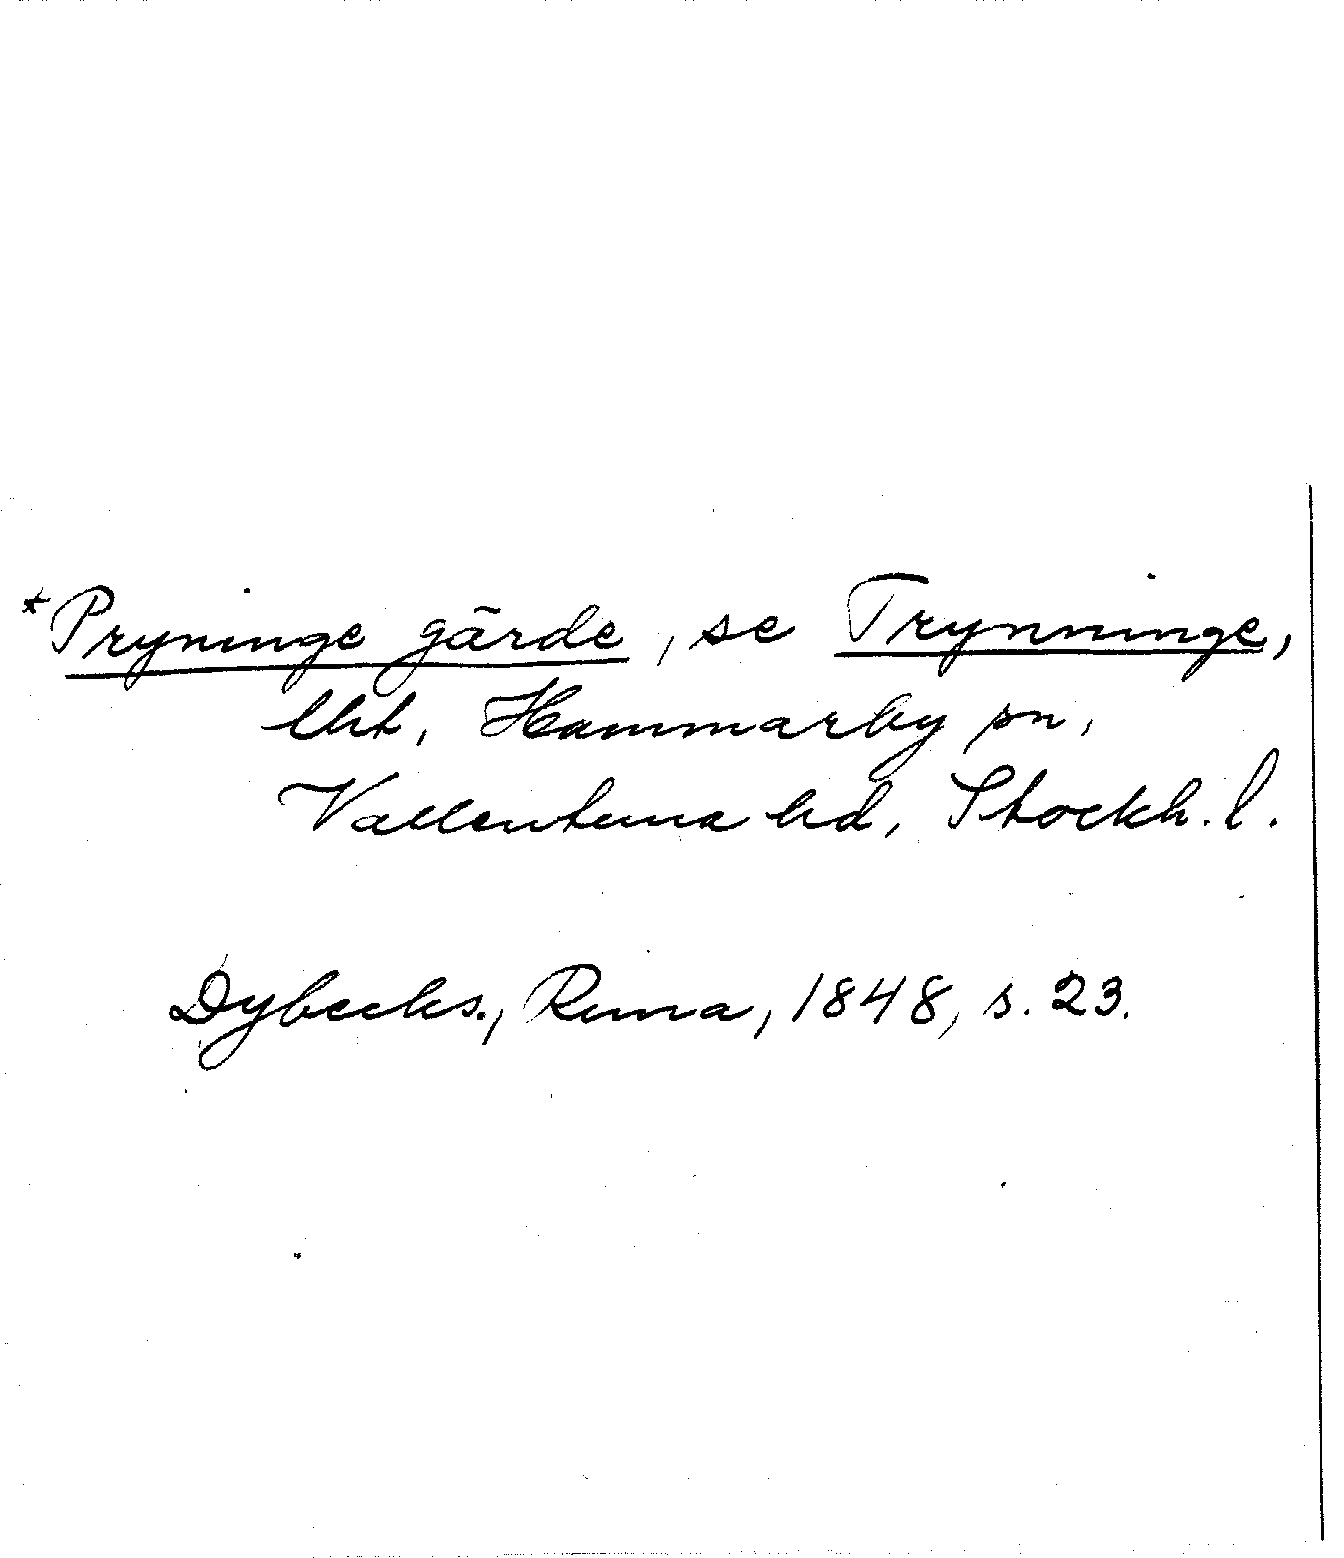 *Pryninge gärde, se Trynninge,
lht, Hammarby sn,
Vallentuna hd, Stockh. l.
Dybecks., Runa, 1848, s. 23.